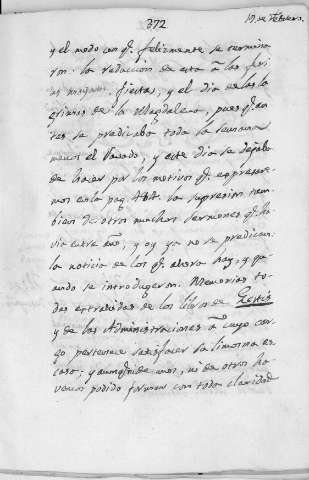 372
19 de Febrero.
y el modo con q.e felizmente se termina
ron: la reduccion de esta a las feri
as mayores. fiestas; y el dia de las la
grimas de la Magdalena, pues q.e an
tes se predicaba toda la semana
menos el Savado; y este dia se dejaba
de hacer por los motivos q.e expresare
mos en la pag. la supresion tam
bien de otros muchos sermones q.e ha
via entre año; y oy ya no se predican:
la noticia de los q.e ahora hay, y qu
ando se introdugeron. Memorias to
das extrahidas de los libros de Gestis
y de las Administraciones a cuyo car
go pertenece satisfacer la limosna es
caso; y aunq.e de unos, ni de otros ha
vemos podido formar con toda claridad